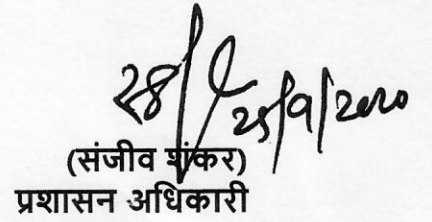 25/9/2020
(संजीव शंकर)
प्रशासन अधिकारी